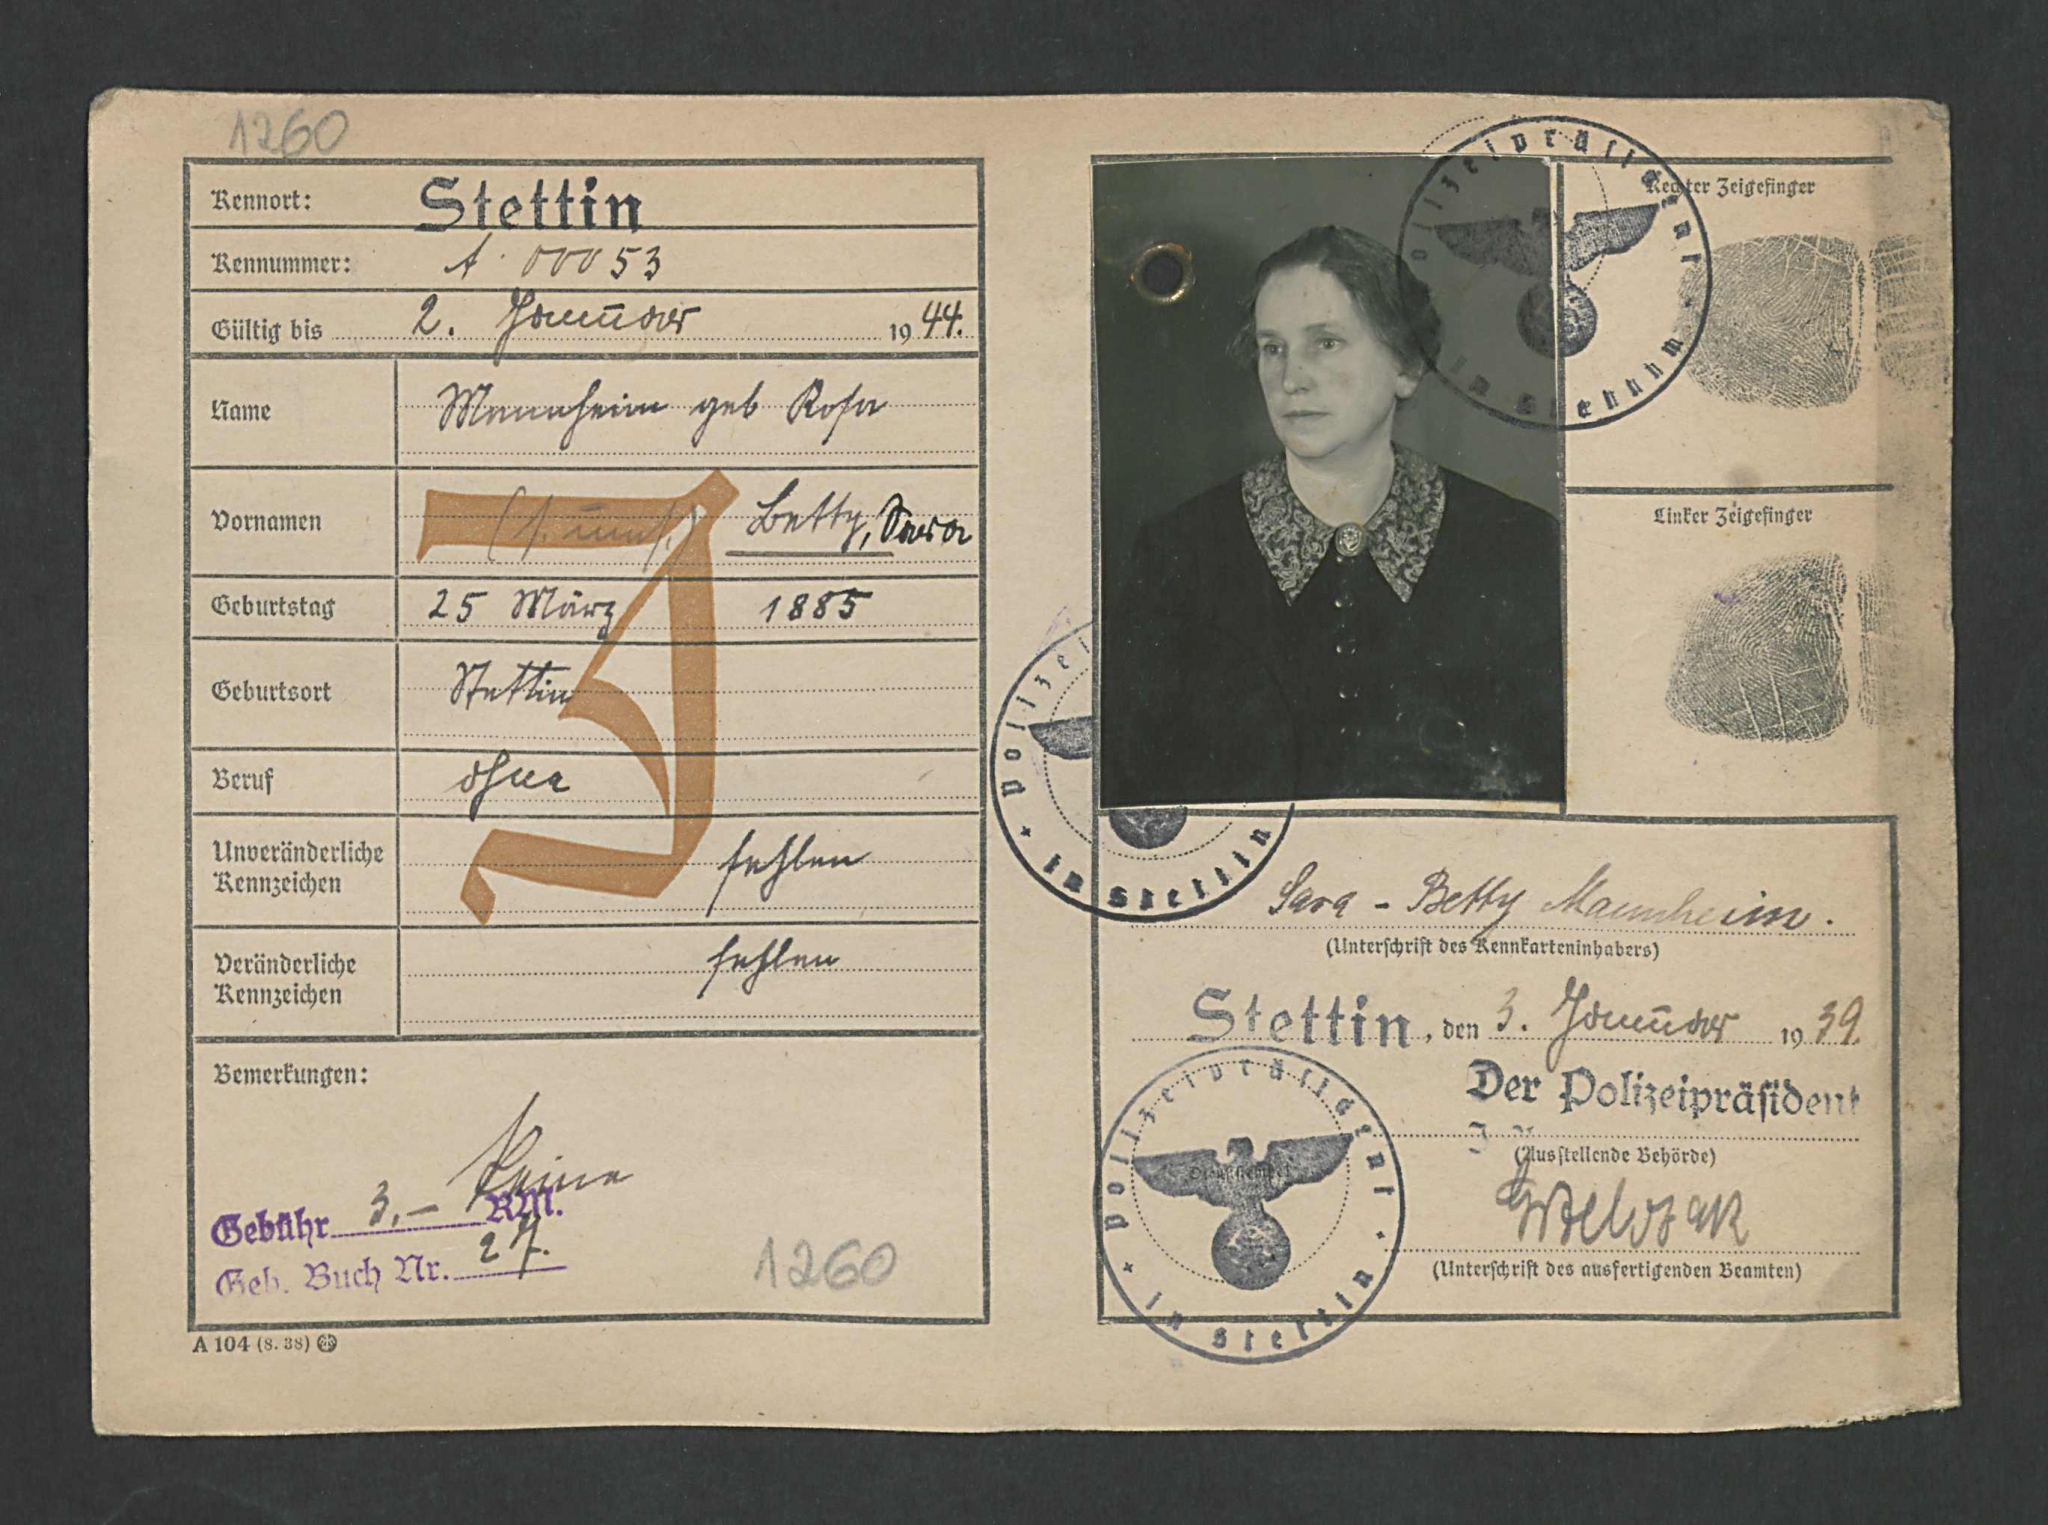 1260
Kennort: Stettin
Kennummer: A 00053
Gültig bis 2. Januar 1944.
Name Mannheim geb Rosa
Vornamen Betty, Sara
Geburtstag 25 März 1885
Geburtsort Stettin
Beruf ohne
Unveränderliche
Kennzeichen fehlen
Veränderliche
Kennzeichen fehlen
J
Bemerkungen:
Keine
Gebühr 3,- RM.
Geb. Buch Nr. 27.
1260
A 104 (8. 38)
Polizeipräsident
in Stettin
Rechter Zeigefinger
Linker Zeigefinger
Polizeipräsident
in Stettin
Sara - Betty Mannheim.
(Unterschrift des Kennkarteninhabers)
Stettin, den 3. Januar 1939.
Der Polizeipräsident
(Ausstellende Behörde)
(Unterschrift des ausfertigenden Beamten)
Polizeipräsident
in Stettin